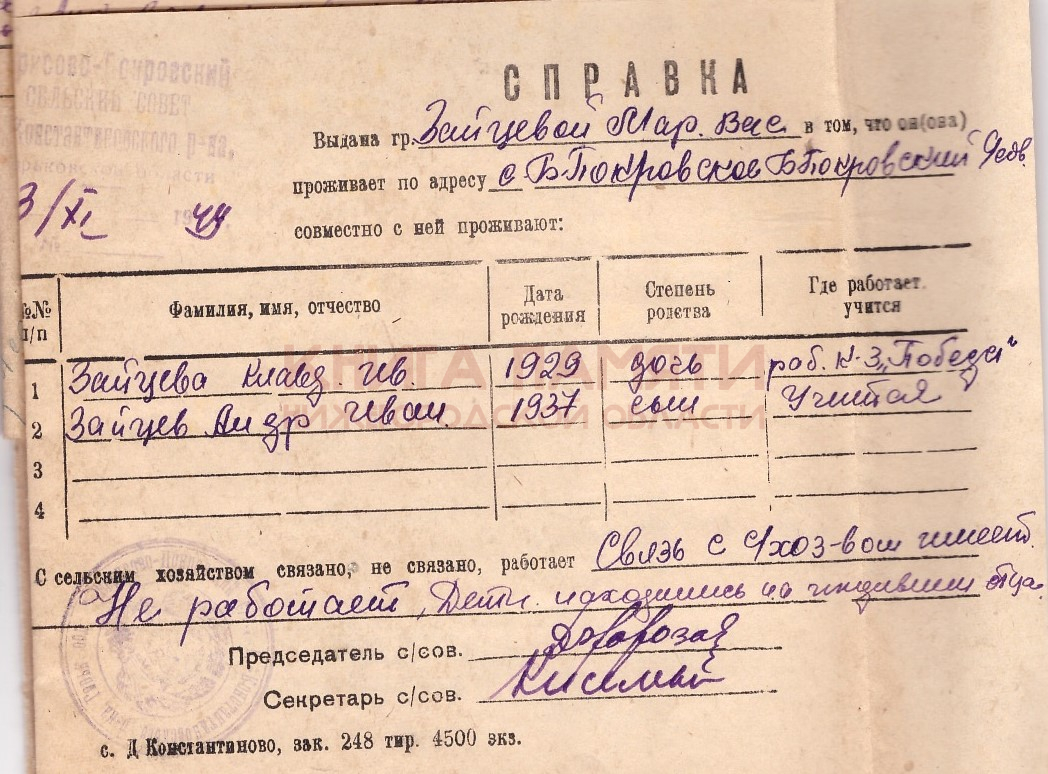 Покровский
СЕЛЬСКИЙ СОВЕТ
Константиновского р-на,
области
3/XI 1949
СПРАВКА
Выдана гр. Зайцевой Мар. Вас. в том, что он(она)
проживает по адресу с Б-Покровское Б-Покровский
совместно с ней проживают:
№№ п/п
Фамилия, имя, отчество
Дата рождения
Степень родства
Где работает учится
1 Зайцева Клавд. Ив. 1929 дочь раб. К-З „Победа“
2 Зайцев Андр Иван. 1937 сын Учится
3
4
КНИГА ПАМЯТИ
НИЖЕГОРОДСКОЙ ОБЛАСТИ
С сельским хозяйством связано, не связано, работает Связь с с/хоз-вом имеет.
Не работает, Дети находились на иждивении отца.
Председатель с/сов.
Секретарь с/сов.
с. Д Константиново, зак. 248 тир. 4500 экз.